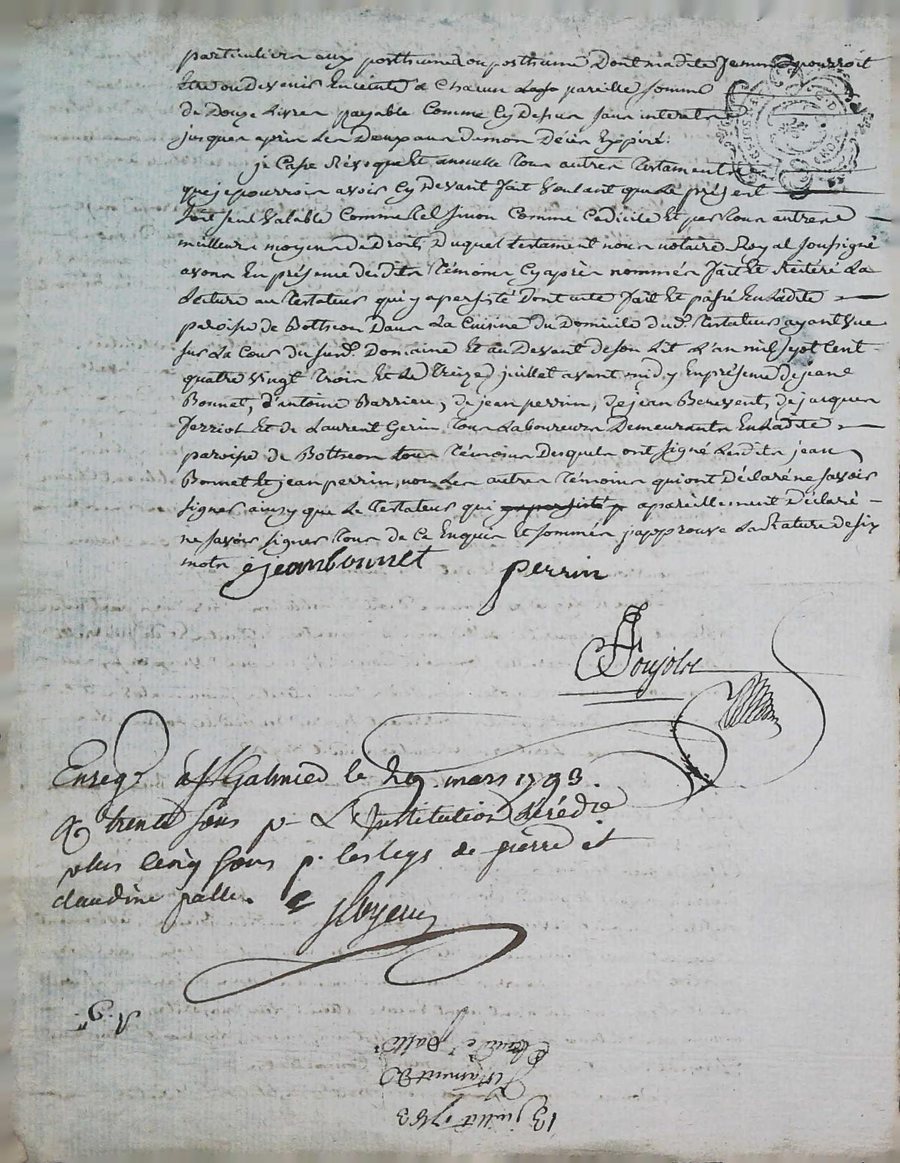 particuliers aux posthumes ou posthume Dont madite femme pourroit
Etre ou devenir Enceinte a Chacun Laso pareille somme
de Douze Livres payable Comme Cy Dessus sans interets
jusques aprés Les Deux ans de mon Décés Expiré.
je Casse Révoque et annulle tous autres testaments
que je pourrois avoir Cy Devant fait voulant que Le présent
soit seul valable Comme tel sinon Comme Codicile et par tous autres
meilleurs moyens de droit, Duquel testament nous notaire Royal soussigné
avons En présence desdits témoins Cy aprés nommés fait et réitéré La
Lecture au testateur qui y a persisté Dont acte fait et passé En Ladite
paroisse de Botheon Dans La Cuisine du Domicile dud. testateur ayant vue
sur La Cour du susd. Domaine et au Devant de son Lit L'an mil sept Cent
quatre vingt trois Et Le treize juillet avant midy En présence de jean
Bonnet, d'antoine Barrieu, de jean perrin, de jean Benevent, de jacques
ferriol et de Laurent Gerin, tous Laboureurs Demeurants En Ladite
paroisse de Botheon tous témoins Desquels ont signé Lesdits jean
Bonnet et jean perrin, non Les autres témoins qui ont Déclaré ne savoir
signer ainsy que Le testateur qui a pareillement Déclaré
ne savoir signer tous de Ce Enquis Et sommés j'approuve La Rature de six
mots
jean bonnet perrin
Enreg.ʳ à St Galmier le 29 mars 1793.
trente sous p. L'Institution d'hérédité
plus cinq sous p. les legs de pierre et
claudine palle.
13 juillet 1783
Testament De
Claude Palle